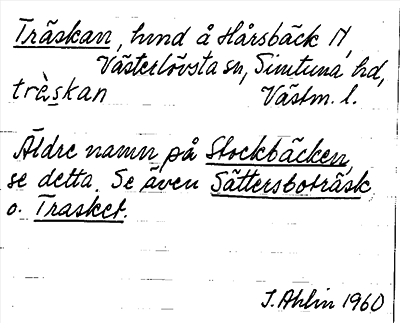 Träskan, hmd å Hårsbäck N,
Västerlövsta sn, Simtuna hd,
trä̀skan Västm. l.
Äldre namn på Stockbäcken,
se detta. Se även Sättersboträsk
o. Trasket.
I. Ahlin 1960